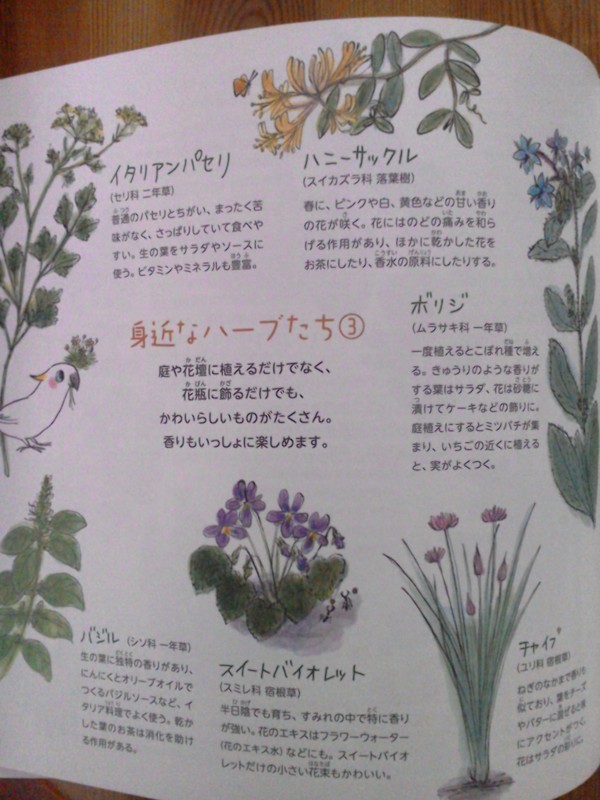 イタリアンパセリ
(セリ科 二年草)
普通のパセリとちがい、まったく苦
味がなく、さっぱりしていて食べや
すい。生の葉をサラダやソースに
使う。ビタミンやミネラルも豊富。
ハニーサックル
(スイカズラ科 落葉樹)
春に、ピンクや白、黄色などの甘い香り
の花が咲く。花にはのどの痛みを和ら
げる作用があり、ほかに乾かした花を
お茶にしたり、香水の原料にしたりする。
身近なハーブたち③
庭や花壇に植えるだけでなく、
花瓶に飾るだけでも、
かわいらしいものがたくさん。
香りもいっしょに楽しめます。
ボリジ
(ムラサキ科 一年草)
一度植えるとこぼれ種で増え
る。きゅうりのような香りが
する葉はサラダ、花は砂糖に
漬けてケーキなどの飾りに。
庭植えにするとミツバチが集
まり、いちごの近くに植える
と、実がよくつく。
バジル (シソ科 一年草)
生の葉に独特の香りがあり、
にんにくとオリーブオイルで
つくるバジルソースなど、イ
タリア料理でよく使う。乾か
した葉のお茶は消化を助け
る作用がある。
スイートバイオレット
(スミレ科 宿根草)
半日陰でも育ち、すみれの中で特に香り
が強い。花のエキスはフラワーウォーター
(花のエキス水) などにも。スイートバイオ
レットだけの小さい花束もかわいい。
チャイブ
(ユリ科 宿根草)
ねぎのなかまで香りも
似ており、葉をチーズ
やバターに混ぜると味
にアクセントがつく。
花はサラダの彩りに。